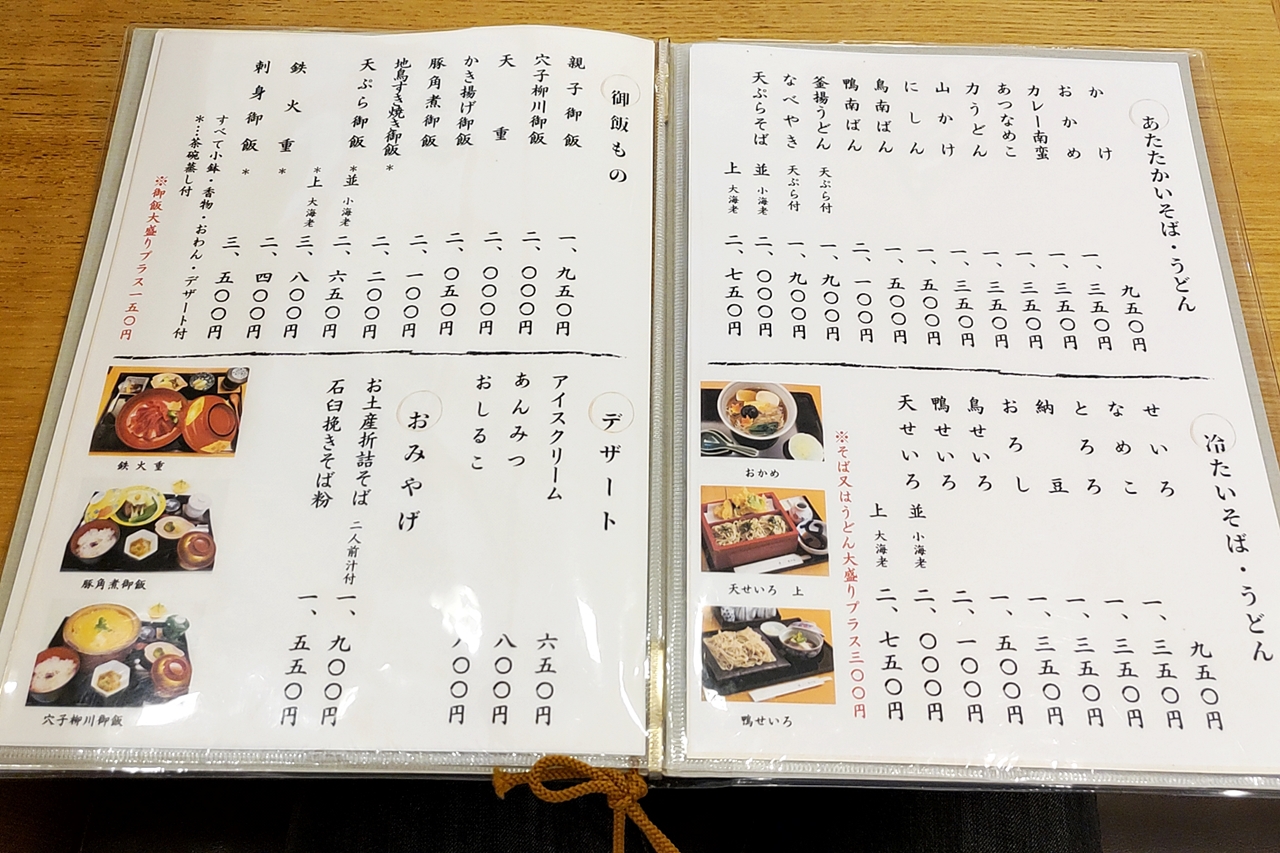 あたたかいそば・うどん
かけ 九五〇円
おかめ 一、三五〇円
カレー南蛮 一、三五〇円
あつなめこ 一、三五〇円
力うどん 一、三五〇円
山かけ 一、三五〇円
にしん 一、五〇〇円
鳥南ばん 一、五〇〇円
鴨南ばん 二、一〇〇円
釜揚うどん 天ぷら付 一、九〇〇円
なべやき 天ぷら付 一、九〇〇円
天ぷらそば 並 小海老 二、〇〇〇円
上 大海老 二、七五〇円
冷たいそば・うどん
せいろ 九五〇円
なめこ 一、三五〇円
とろろ 一、三五〇円
納豆 一、三五〇円
おろし 一、三五〇円
鳥せいろ 一、五〇〇円
鴨せいろ 二、一〇〇円
天せいろ 並 小海老 二、〇〇〇円
上 大海老 二、七五〇円
※そば又はうどん大盛りプラス三〇〇円
おかめ
天せいろ 上
鴨せいろ
御飯もの
親子御飯 一、九五〇円
穴子柳川御飯 二、〇〇〇円
天重 二、〇〇〇円
かき揚げ御飯 二、〇五〇円
豚角煮御飯 二、一〇〇円
地鳥すき焼き御飯* 二、二〇〇円
天ぷら御飯 *並 小海老 二、六五〇円
*上 大海老 三、八〇〇円
鉄火重* 二、四〇〇円
刺身御飯* 三、五〇〇円
すべて小鉢・香物・おわん・デザート付
*…茶碗蒸し付
※御飯大盛りプラス一五〇円
デザート
アイスクリーム 六五〇円
あんみつ 八〇〇円
おしるこ 八〇〇円
おみやげ
お土産折詰そば 二人前汁付 一、九〇〇円
石臼挽きそば粉 一、五五〇円
鉄火重
豚角煮御飯
穴子柳川御飯